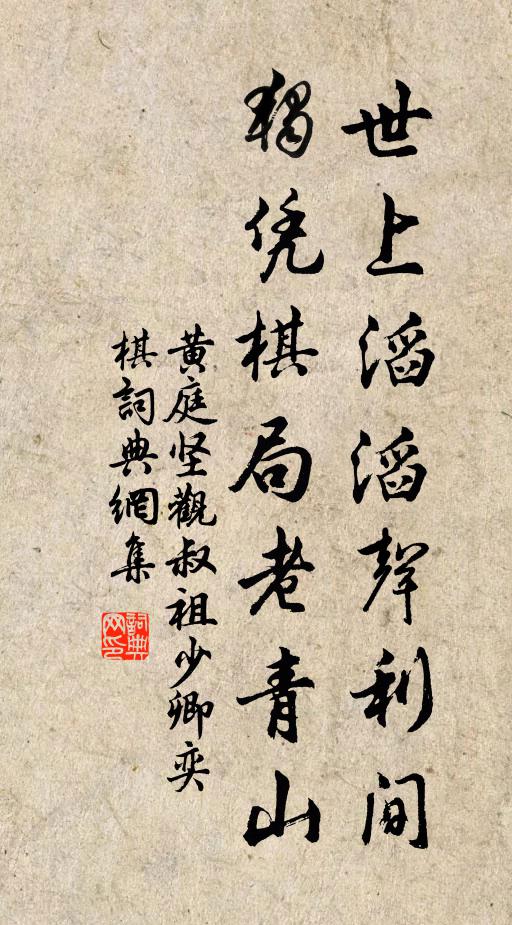 世上滔滔聲利间
獨凭棋局老青山
黄庭坚觀叔祖少卿奕
棋詞典網集
詞典网印